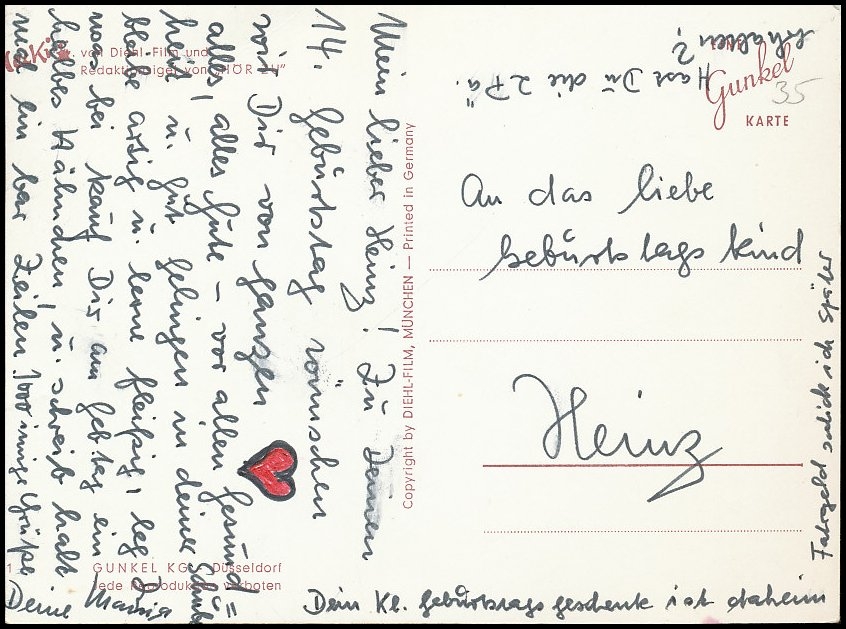 Mein lieber Heinz! Zu Deinem
14. Geburtstag wünschen
wir Dir von ganzen
alles, alles Gute – vor allen Gesund=
heit u. gut gelingen in deiner Schule
bleibe artig u. lerne fleißig, leg Dir
was bei kauf Dir am Geb.tag ein
halbes Hähnchen, u. schreib halt
mal ein par Zeilen 1000 innige Grüße
Deine Mama
Dein Kl. Geburtstagsgeschenk ist daheim
Fahrgeld schick ich später
Hast Du die 2 Pä.
erhalten?
von Diehl-Film und
Redaktionsigel von „HÖR ZU"
GUNKEL KG, Düsseldorf
Jede Reproduktion verboten
Copyright by DIEHL-FILM, MÜNCHEN — Printed in Germany
EINE
Gunkel
35
KARTE
An das liebe
Geburtstags Kind
Heinz